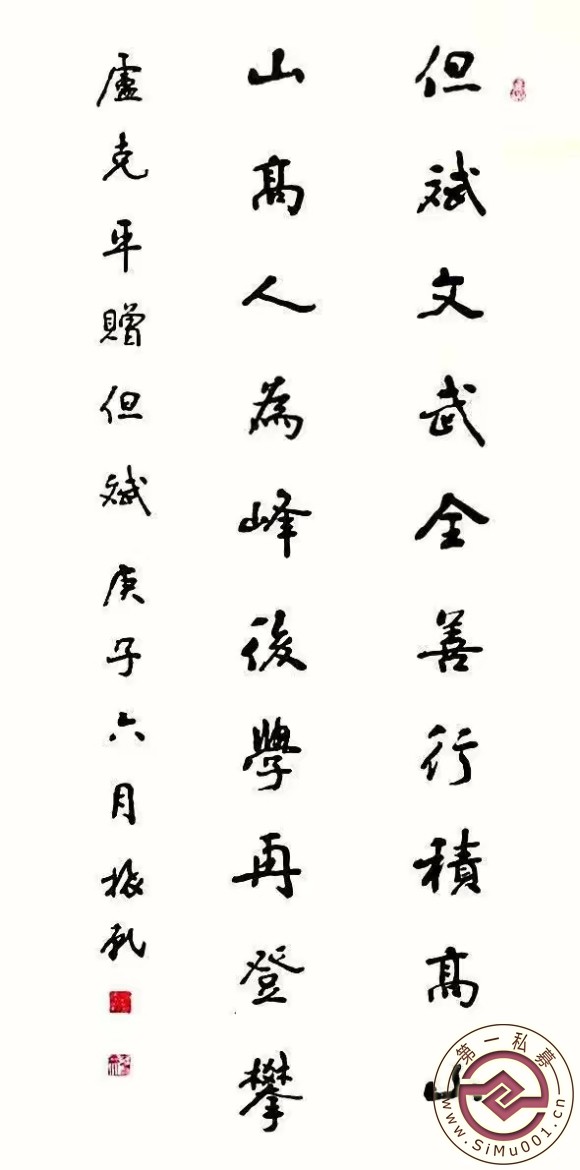 但斌文武全善行積高山
山高人為峰後學再登攀
盧克平贈但斌庚子六月振乾
第一私募
www.SiMu001.cn